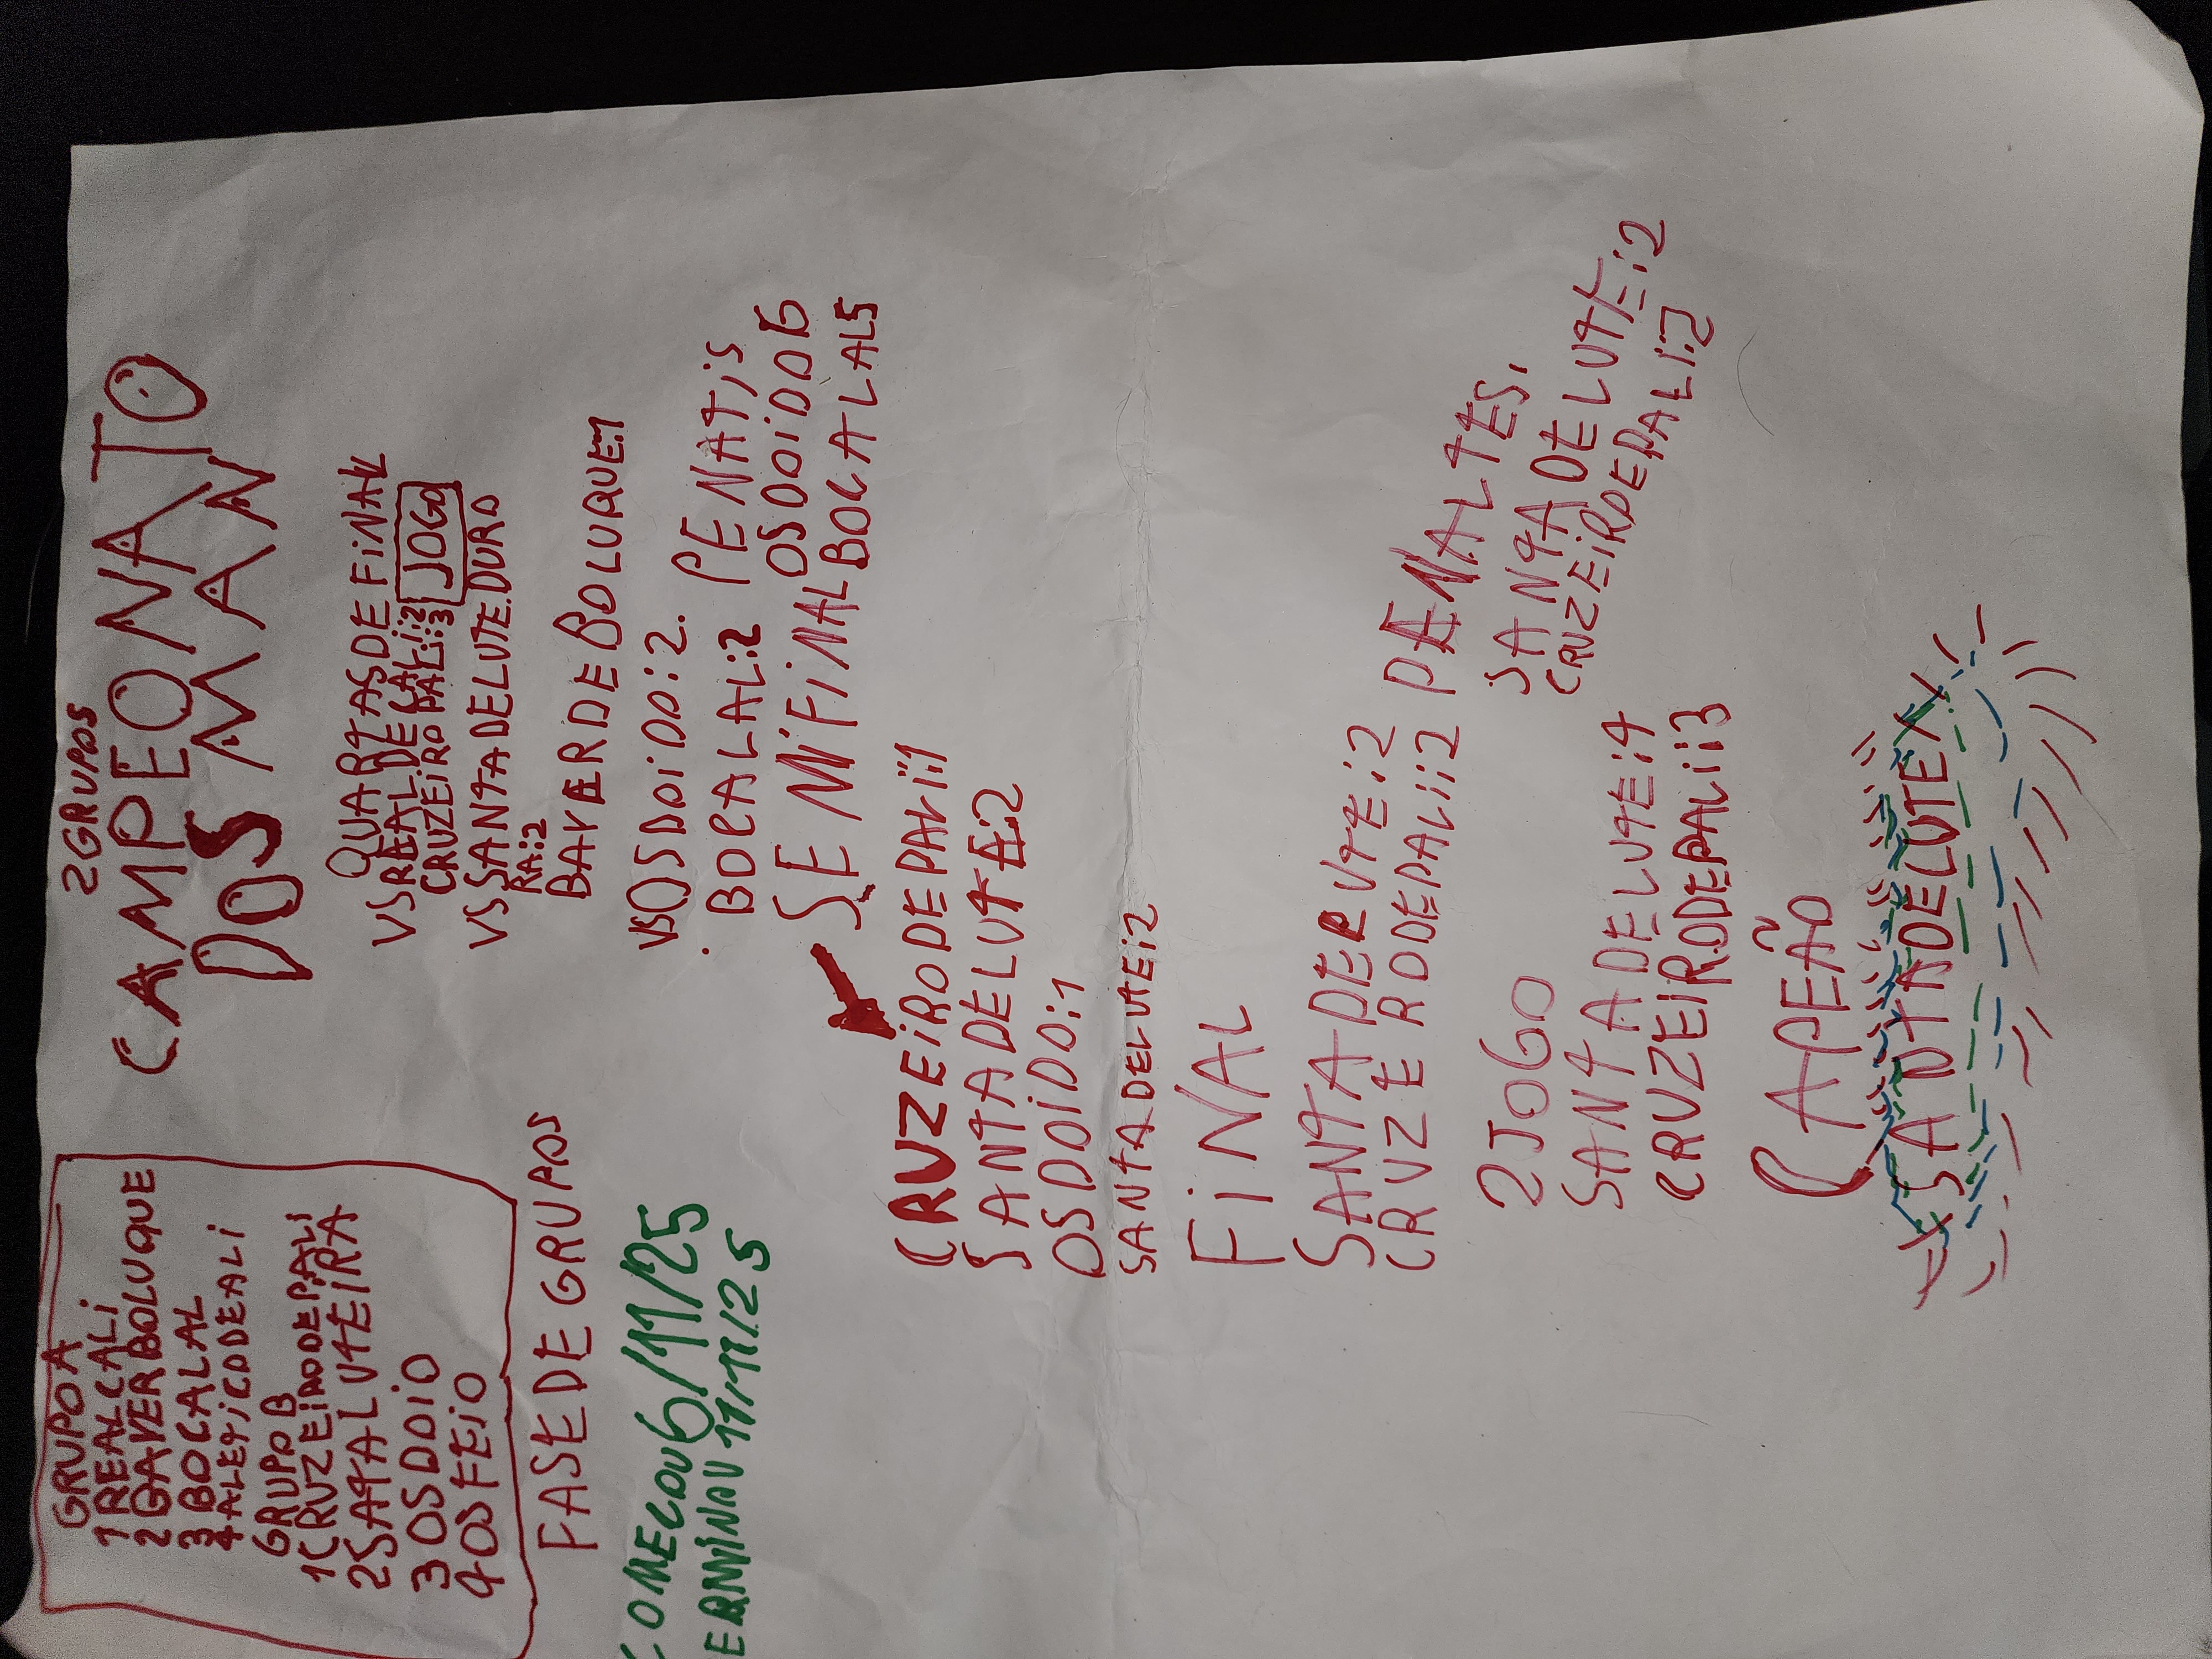 2GRUPOS
CAMPEONATO
DOS MAN
GRUPO A
1 REALCALI
2 GAVERBOLUQUE
3 BOCALAL
4 ALETICODEALI
GRUPO B
1CRUZEIRODEPALI
2SATALUTEIRA
3 OSDDIO
4OSFEIO
FASE DE GRUPOS
COMECOU6/11/25
ERMINOU 11/11/25
QUARTASDE FINAL
VSREALDECALI:2
CRUZEIROPALI:3 JOGO
VS SANTADELUTE.DURO
RA:2
BAYERDEBOLUQUE:1
VSOSDOIDO:2. PENATIS
. BOCALAL:2 OSDOIDO6
BOCALAL5
SEMIFINAL
CRUZEIRODEPALI:1
SANTADELUTE:2
OSDOIDO:1
SANTADELUTE:2
FINAL
SANTADELUTE:2
CRUZERODEPALI:2 PENALTES.
SANTADELUTE:2
CRUZEIRDEPALI:2
2JOGO
SANTADELUTE:4
CRUZEIRODEPALI:3
CAPEÃO
SANTADELUTE